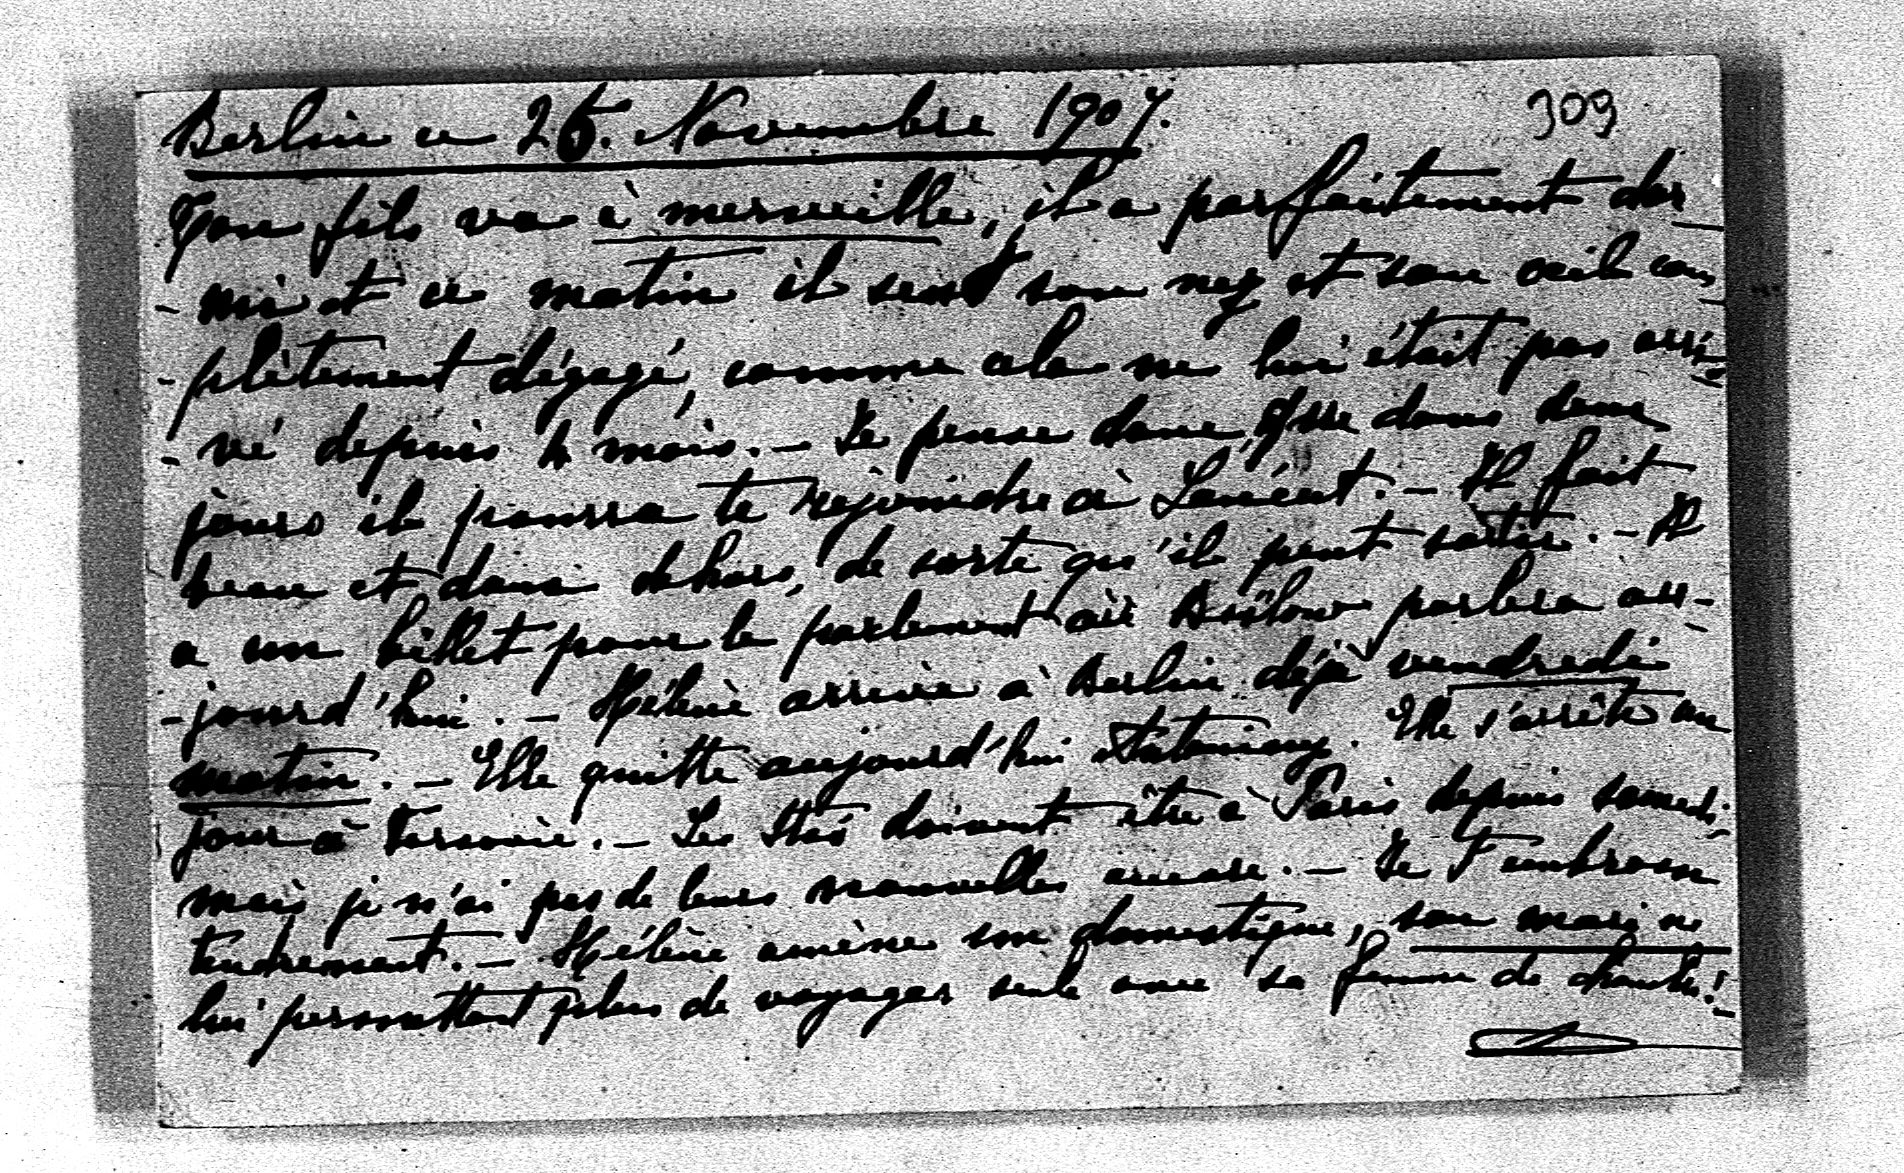 Berlin ce 26. Novembre 1907.
309
Ton fils va à merveille, il a parfaitement dor-
-mir et ce matin il sent son nez et son oeil com-
-plètement dégagé, comme cela ne lui était pas arri-
-vé depuis h mois. – Je pense donc, que dans deux
jours il pourra te rejoindre à Lancut. – Il fait
beau et doux dehors, de sorte qu'il peut sortir. – Il
a un billet pour le parlement où Bülow parlera au-
-jourd'hui. – Hélène arrive à Berlin déjà vendredi
matin. – Elle quitte aujourd'hui Antoniny. Elle s'arrête un
jour à Varsovie. – Les doivent être à Paris depuis samedi,
mais je n'ai pas de leurs nouvelles encore. – Je t'embrasse
tendrement. – Hélène amène son domestique, son mari ne
lui permettant plus de voyager seule avec sa femme de chambre!